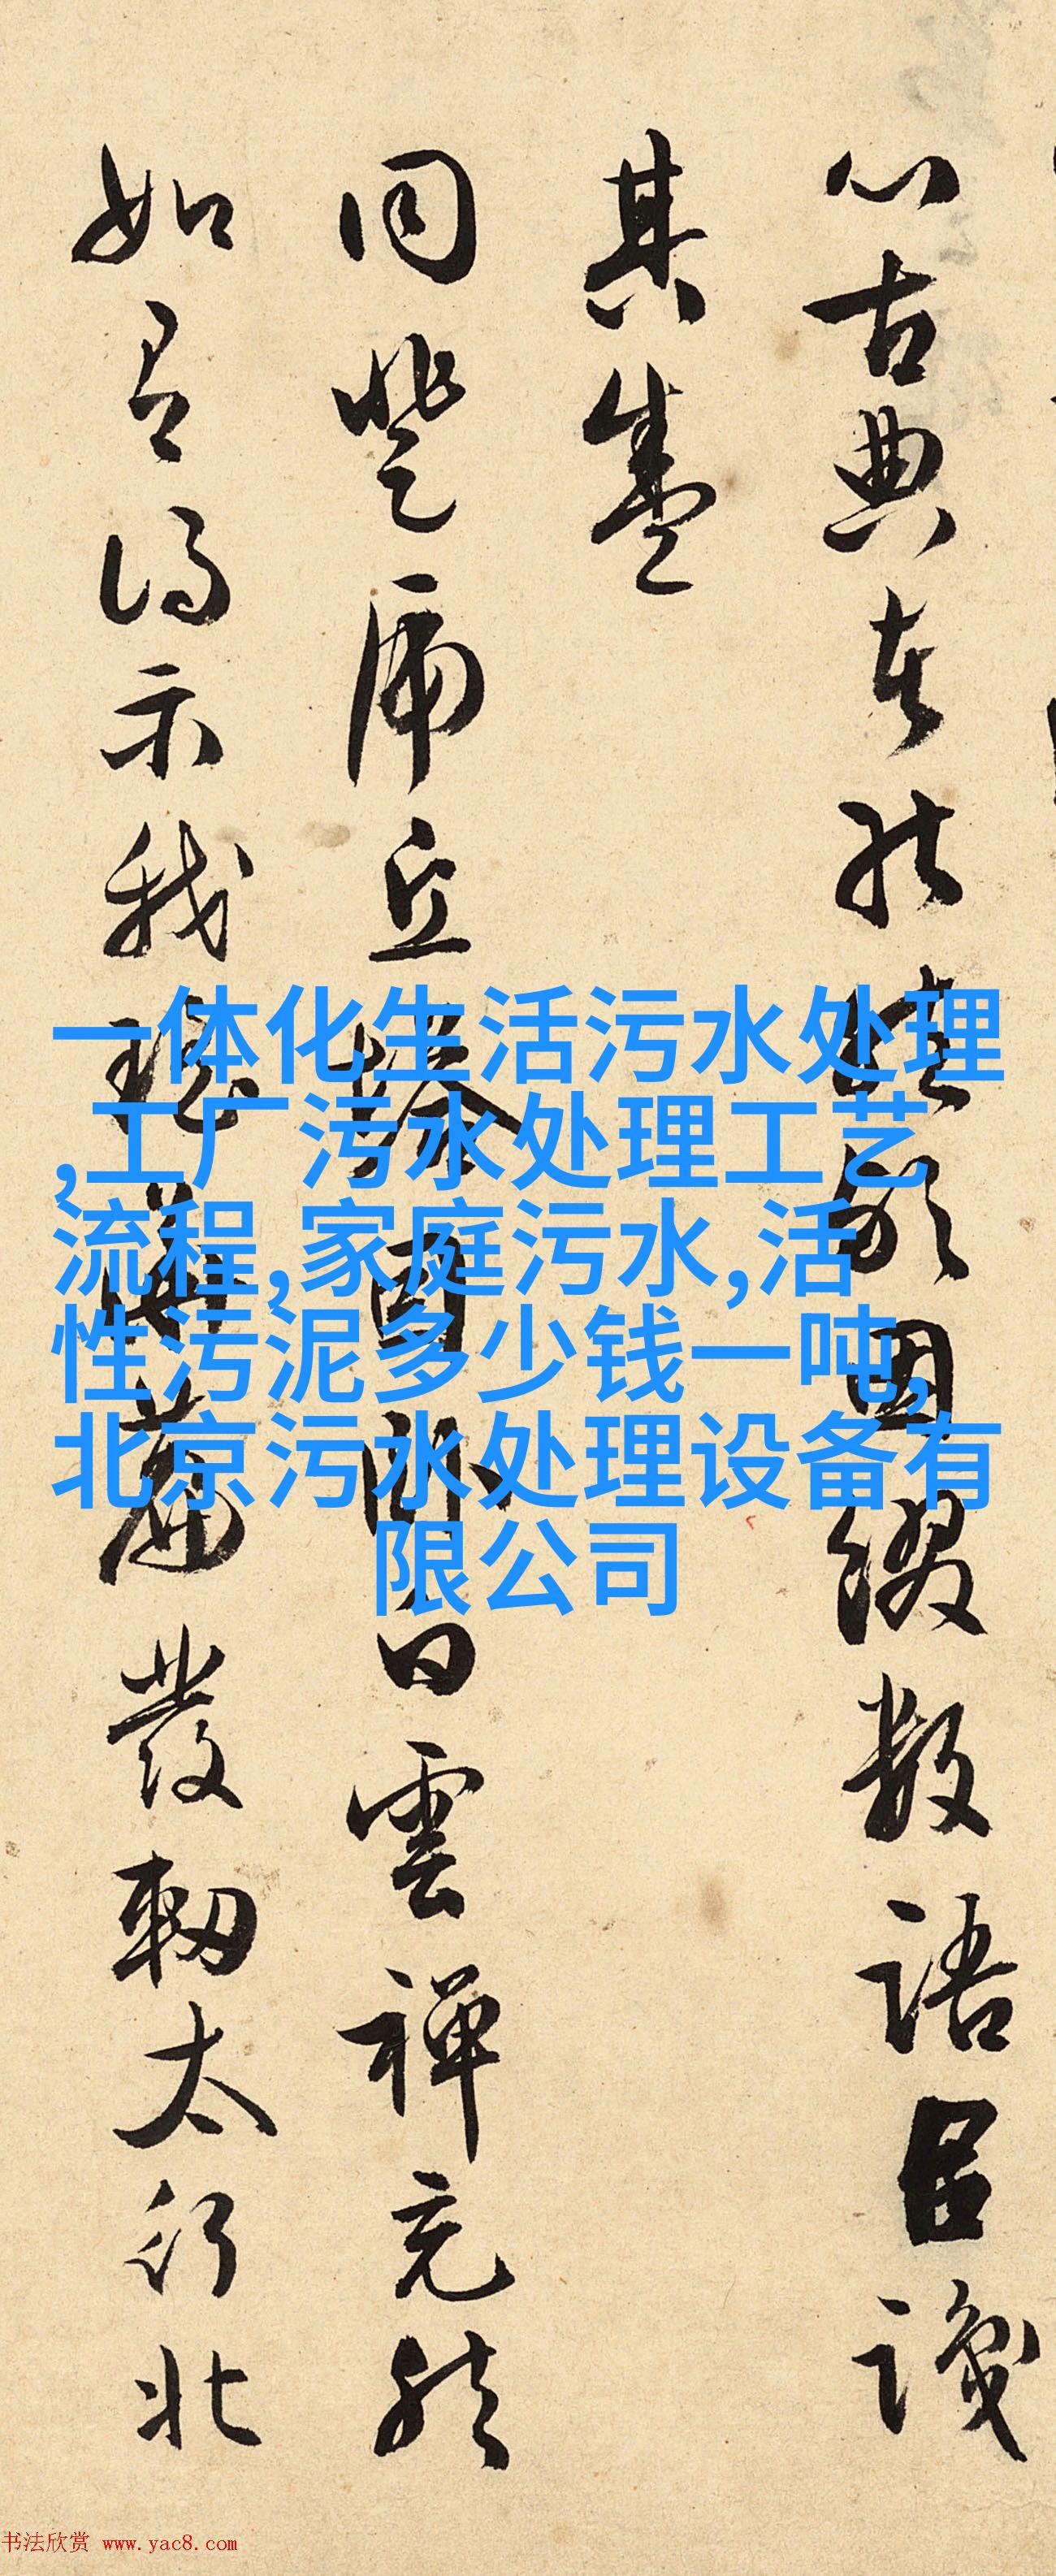 古典因綴數語㠯識
其盛
同登虎丘雲禪充然
如有得示我華篇發軔太行北
一体化生活污水处理
,工厂污水处理工艺
流程,家庭污水,活
性污泥多少钱一吨,
北京污水处理设备有
限公司
书法欣赏 www.yac8.com